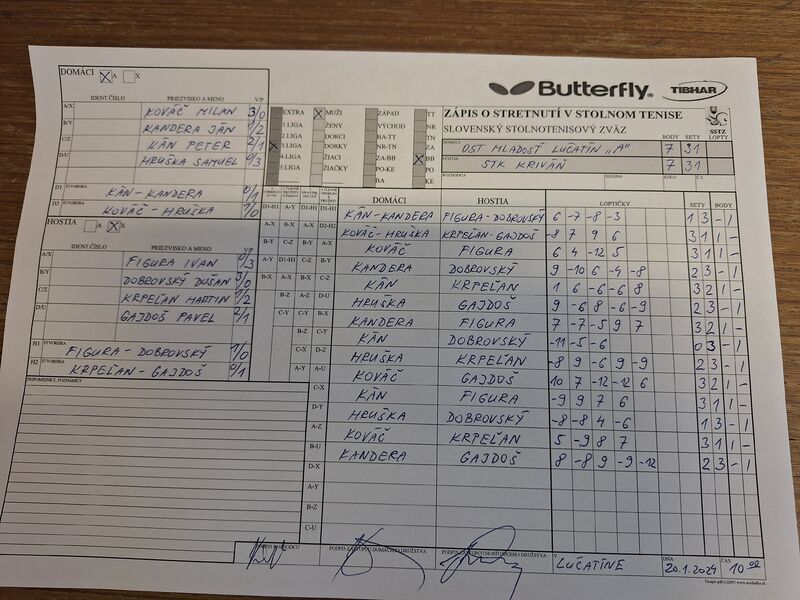 DOMÁCI X A X
IDENT.ČÍSLO PRIEZVISKO A MENO V/P
A/X KOVÁČ MILAN 3/0
B/Y KANDERA JÁN 1/2
C/Z KÁN PETER 2/1
D/U HRUŠKA SAMUEL 0/3
D1 ŠTVORHRA KÁN-KANDERA 0/1
D2 KOVÁČ-HRUŠKA 1/0
HOSTIA A X
IDENT.ČÍSLO PRIEZVISKO A MENO V/P
A/X FIGURA IVAN 0/3
B/Y DOBROVSKÝ DUŠAN 3/0
C/Z KRPEĽAN MARTIN 1/2
D/U GAJDOŠ PAVEL 2/1
H1 ŠTVORHRA FIGURA-DOBROVSKÝ 1/0
H2 ŠTVORHRA KRPEĽAN-GAJDOŠ 0/1
PRIPOMIENKY, POZNÁMKY
Butterfly TIBHAR
EXTRA X MUŽI ZÁPAD TT
1.LIGA ŽENY VÝCHOD NR
2.LIGA DORCI BA-TT TN
X 3.LIGA DORKY NR-TN ZA
4.LIGA ŽIACI ZA-BB X BB
5.LIGA ŽIAČKY PO-KE PO
BA KE
ZÁPIS O STRETNUTÍ V STOLNOM TENISE
SLOVENSKÝ STOLNOTENISOVÝ ZVÄZ
SSTZ
BODY SETY LOPTY
DOMÁCI OŠT MLADOSŤ LUČATÍN "A" 7 31
HOSTIA STK KRIVÁŇ 7 31
ROZHODCA SEZÓNA KOLO Č.Z.
DOMÁCI HOSTIA LOPTIČKY SETY BODY
KÁN-KANDERA FIGURA-DOBROVSKÝ 6 -7 -8 -3 1 3 - 1
KOVÁČ-HRUŠKA KRPEĽAN-GAJDOŠ -8 7 9 6 3 1 1 -
KOVÁČ FIGURA 6 4 -12 5 3 1 1 -
KANDERA DOBROVSKÝ 9 -10 6 -4 -8 2 3 - 1
KÁN KRPEĽAN 1 6 -6 -6 8 3 2 1 -
HRUŠKA GAJDOŠ 9 -6 8 -6 -9 2 3 - 1
KANDERA FIGURA 7 -7 -5 9 7 3 2 1 -
KÁN DOBROVSKÝ -11 -5 -6 0 3 - 1
HRUŠKA KRPEĽAN -8 9 -6 9 -9 2 3 - 1
KOVÁČ GAJDOŠ 10 7 -12 -12 6 3 2 1 -
KÁN FIGURA -9 9 7 6 3 1 1 -
HRUŠKA DOBROVSKÝ -8 -8 4 -6 1 3 - 1
KOVÁČ KRPEĽAN 5 -9 8 7 3 1 1 -
KANDERA GAJDOŠ 8 -8 9 -9 -12 2 3 - 1
C-X
D-Y
A-Z
B-U
D-X
A-Y
B-Z
C-U
PODPIS ROZHODCU PODPIS ZÁSTUPCU DOMÁCEHO DRUŽSTVA PODPIS ZÁSTUPCU HOSŤUJÚCEHO DRUŽSTVA V LUČATÍNE DŇA 20.1.2024 ČAS 10 00